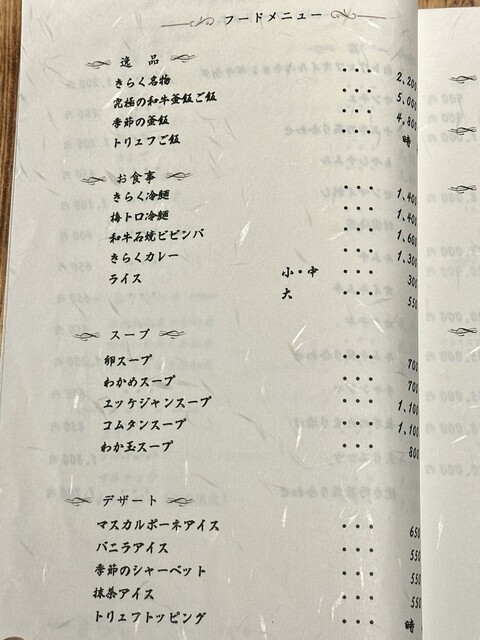 フードメニュー
逸品
きらく名物 ・・・ 2,200
究極の和牛釜飯ご飯 ・・・ 5,000
季節の釜飯 ・・・ 4,800
トリュフご飯 ・・・ 時
お食事
きらく冷麺 ・・・ 1,400
梅トロ冷麺 ・・・ 1,400
和牛石焼ビビンバ ・・・ 1,600
きらくカレー ・・・ 1,300
ライス 小・中 ・・・ 300
大 ・・・ 550
スープ
卵スープ ・・・ 700
わかめスープ ・・・ 700
ユッケジャンスープ ・・・ 1,100
コムタンスープ ・・・ 1,100
わか玉スープ ・・・ 800
デザート
マスカルポーネアイス ・・・ 650
バニラアイス ・・・ 550
季節のシャーベット ・・・ 550
抹茶アイス ・・・ 550
トリュフトッピング ・・・ 時